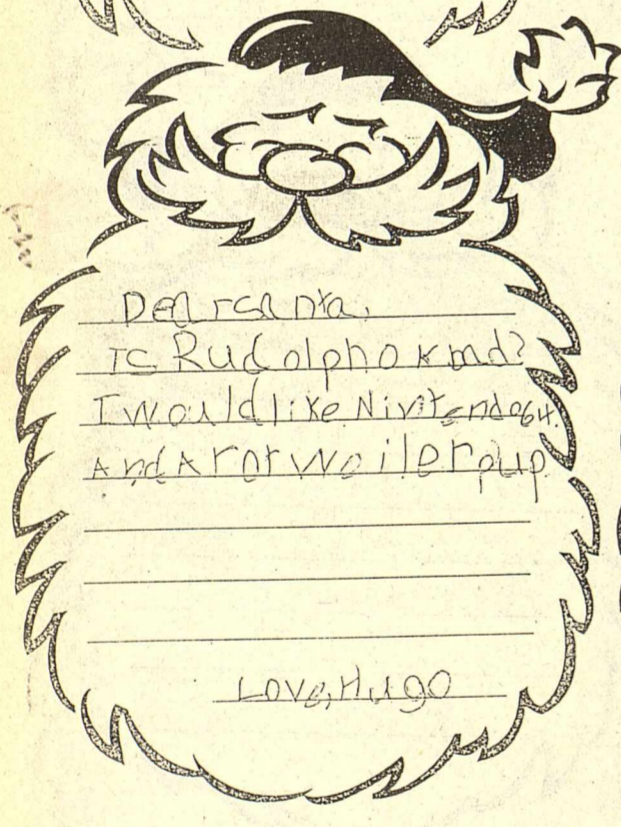 Dear santa,
IS Rudolph ok bad?
I would like Nintendo64.
And A rotwoiler pup
Love, Hugo